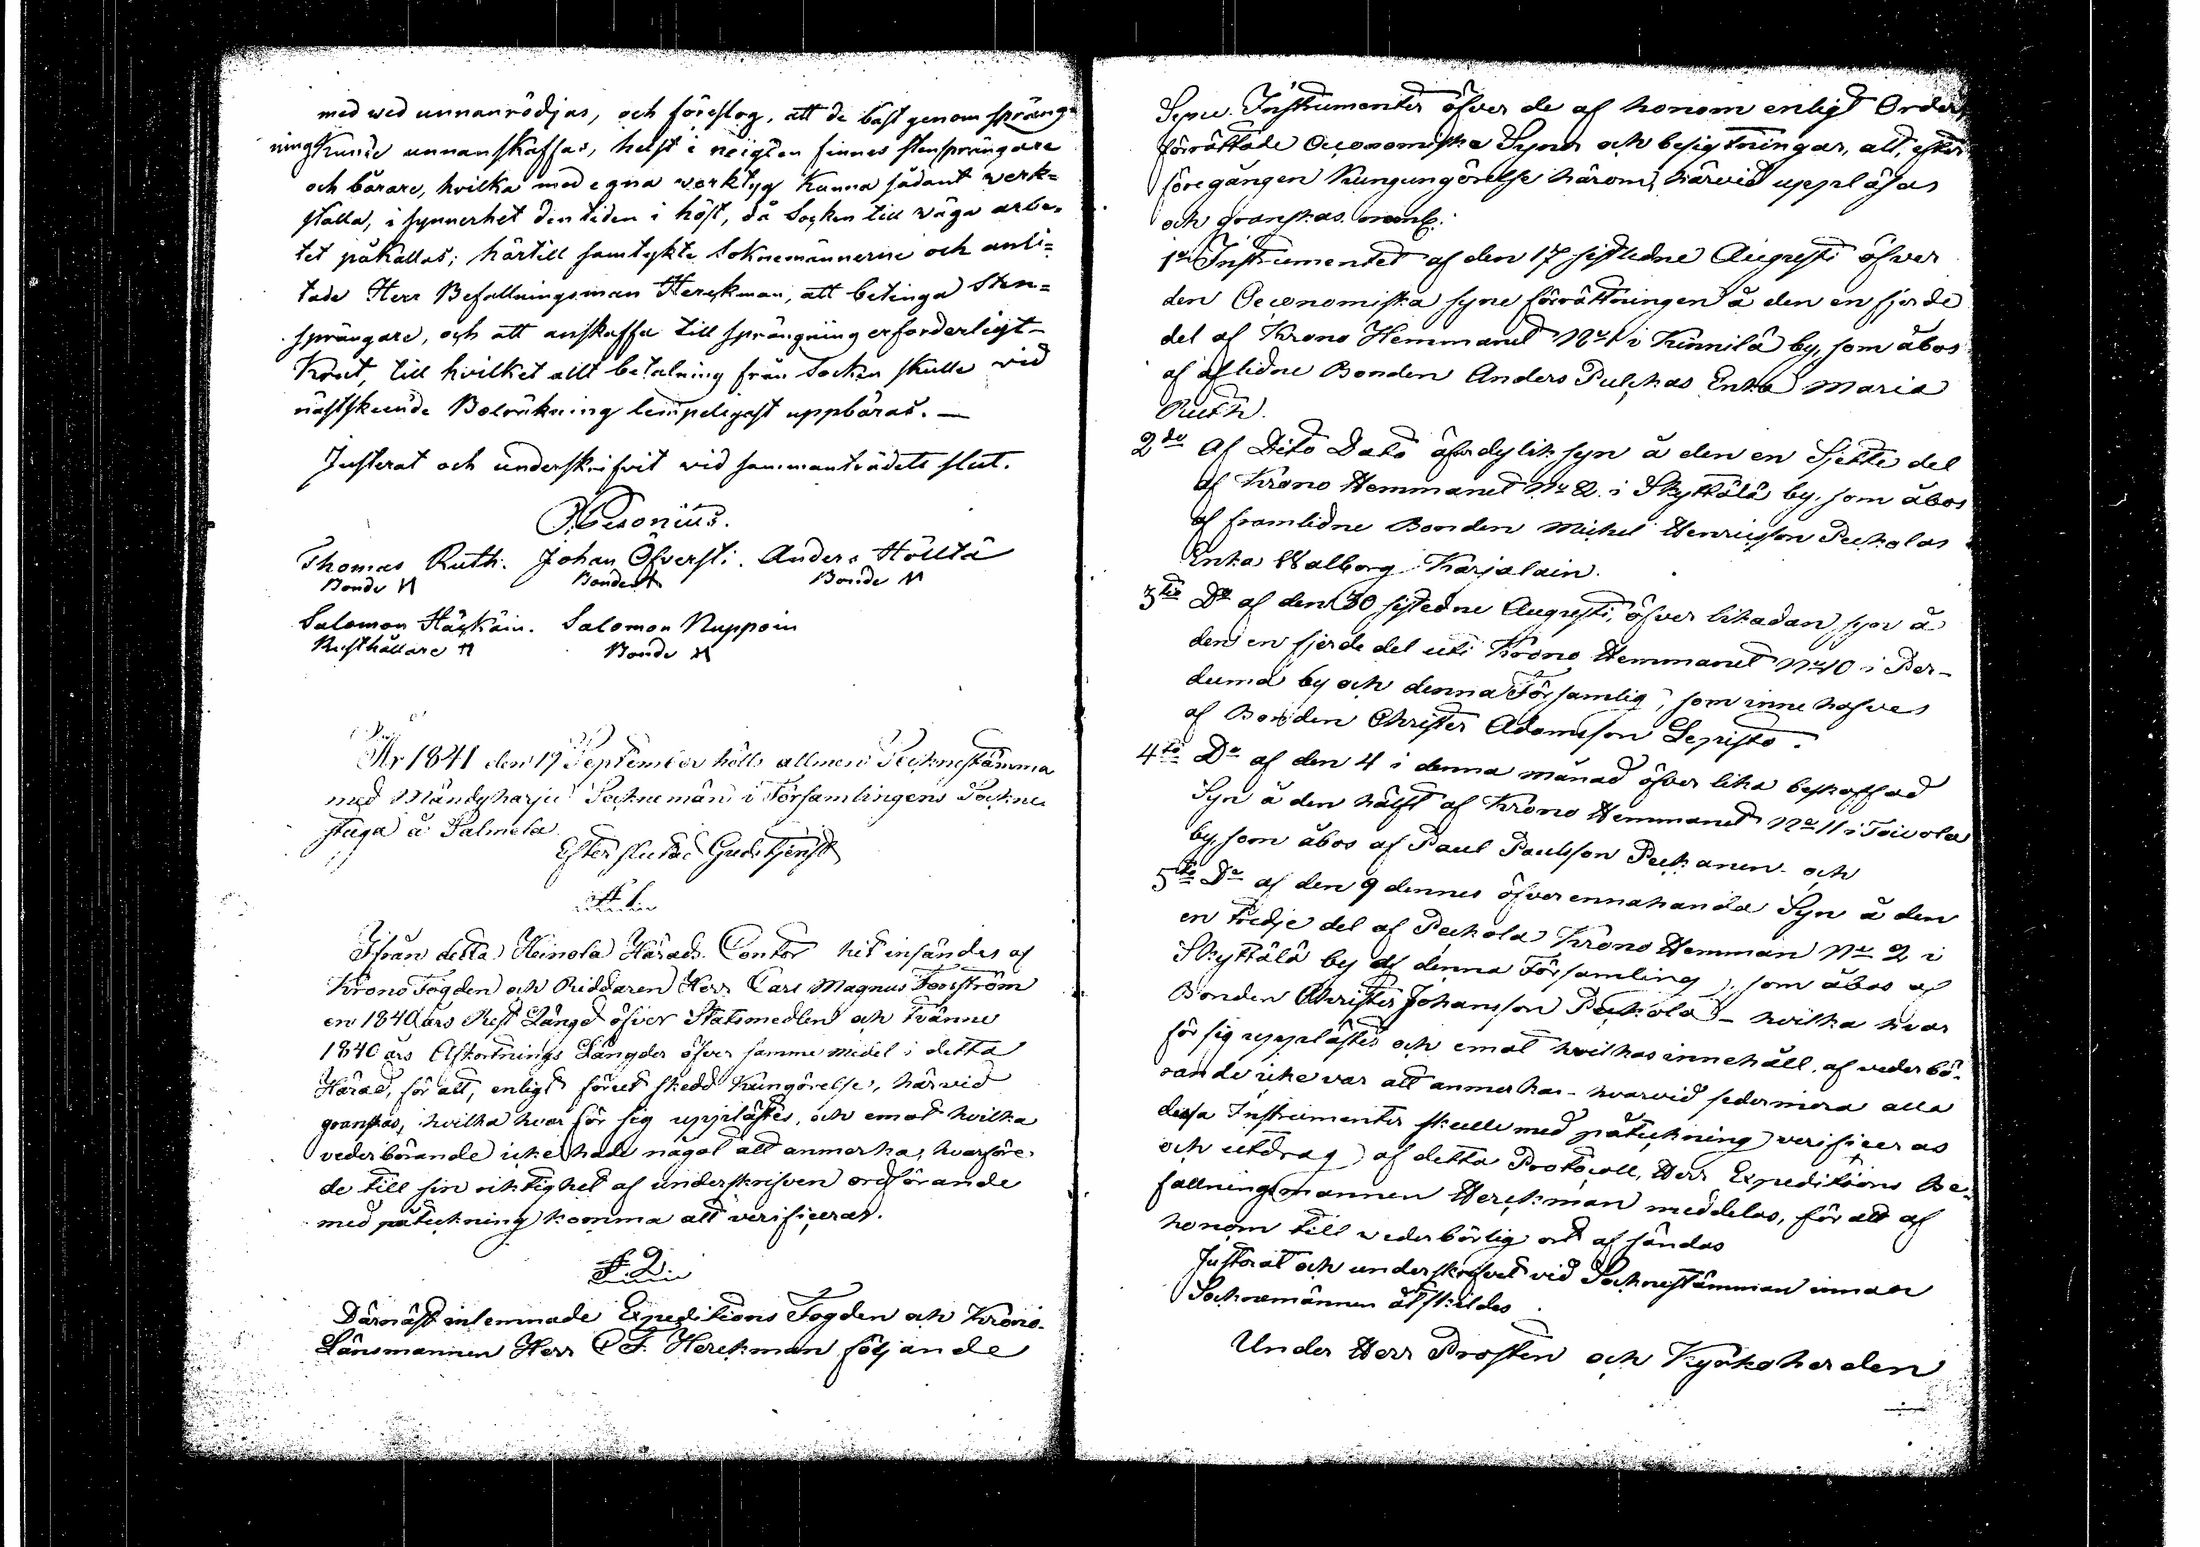 med wed unnanrödjas, och föreslog, att de bäst genom spräng-
ning kunde unnanskaffas, helst i neigden finnes stensprängare
och bärare, hvilka med egna verktyg kunna sådant werk-
ställa, i synnerhet den tiden i höst, då Socken till wäga arbe-
tet påkallas; härtill samtykte Soknemännerne och anli-
tade Herr Befallningsman Herckman, att betinga Sten-
sprängare, och att anskaffa till sprängning erforderligt
Krut, till hvilket allt betalning från Socken skulle wid
nästskeende Bolräkning lempeligast uppbäras. —
Justerat och underskrifvit wid sammanträdets slut.
Thomas Ruth. Johan Öfversti. Anders Hölttä
Bonde Bonde Bonde
Salomon Häskäin. Salomon Nuppoin
Rusthållare Bonde
År 1841 den 19 September hölls allmen Socknestämma
med Mändyharju Socknemän i Församlingens Sockne
stuga å Salmela.
Efter slutad Gudstjenst
§ 1.
Ifrån detta Heinola Härads Contor hit insändes af
Krono Fogden och Riddaren Herr Carl Magnus Forsström
en 1840 års Rest Längd öfver Statsmedlen och tvänne
1840 års Afkortnings Längder öfver samme medel i detta
Härad, för att, enligt förut skedd Kungörelse, härvid
granskas, hvilka hvar för sig upplästes, och emot hvilka
vederbörande icke hade något att anmerka, hvarföre
de till sin riktighet af underskrifven ordförande
med påteckning komma att verificeras.
§ 2.
Därnäst inlemnade Expeditions Fogden och Krono-
Länsmannen Herr C F. Herckman följande
Syne Instrumenter öfver de af honom enligt Order
förrättade Oeconomiska Syner och besigtningar, att, efter
föregången Kungörelse härom, härvid uppläsas
och granskas
1o Instrumentet af den 17 sistledne Augusti öfver
den Oeconomiska syne förrättningen å den en fjerde
del af Krono Hemmanet No 1 i Kinnilä by, som åbos
af aflidne Bonden Anders Pulkkas Enka Maria
Ruth.
2do Af Dito Dato öfver dylik syn å den en Sjette del
af Krono Hemmanet No 2. i Skyttälä by, som åbos
af framlidne Bonden Michel Henricsson Peckolas
Enka Walborg Karjalain.
3tio Do af den 30 sistledne Augusti, öfver likadan syn å
den en fjerde del uti Krono Hemmanet No 10 i Per-
dumä by och denna Församlig, som innehafves
af Bonden Christer Adamsson Lepistö.
4to Do af den 4 i denna månad öfver lika beskaffad
Syn å den hälft af Krono Hemmanet No 11 i Toivola
by, som åbos af Paul Paulsson Peckanen. och
5to Do af den 9 dennes öfver ennahanda Syn å den
en tredje del af Peckola Krono Hemman No 2 i
Skyttälä by af denna Församling, som åbos af
Bonden Christer Johansson Peckola – hvilka hvar
för sig upplästes och emot hvilkas innehåll, af vederbö-
rande icke var att anmerka – hvarvid sedermera alla
dessa Instrumenter skulle med påteckning verificeras
och utdrag af detta Protocoll, Herr Expeditions Be-
fallningsmannen Herckman meddelas, för att af
honom till vederbörlig ort afsändas
Justerat och underskrifvet vid Socknestämman innan
Socknemännen åtskildes.
Under Herr Prosten och Kyrkoherden